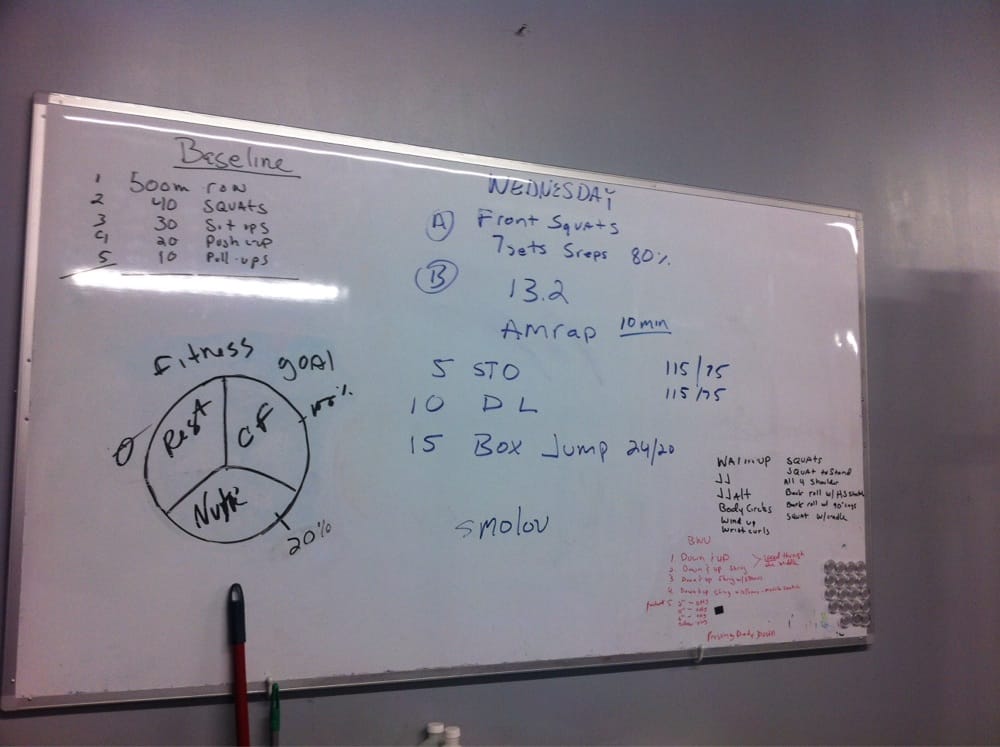 Baseline
1 500m row
2 40 SQUATS
3 30 Sit ups
4 20 Push up
5 10 Pull-ups
Fitness goal
Rest
CF
Nutri
0
100%
20%
WEDNESDAY
A Front Squats
7sets 5reps 80%
B 13.2
Amrap 10 min
5 STO 115/75
10 DL 115/75
15 Box Jump 24/20
smolov
WARM UP
JJ
JJ Alt
Body Circles
Wind up
Wrist curls
SQUATS
SQUAT to Stand
All 4 Shoulder
Back roll w/
Back roll w/ 90°
SQUAT w/cradle
BWU
1. Down & UP
2. Down & up
speed through the middle
3 Down & up
4 Down & up
Pressing Body Down